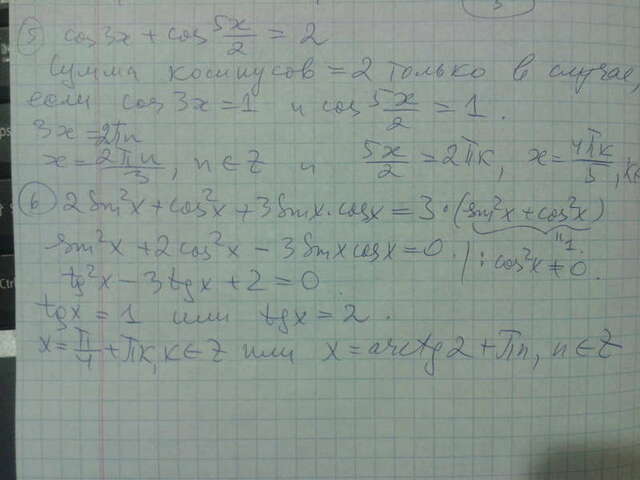 ⑤ cos 3x + cos 5x/2 = 2
Сумма косинусов = 2 только в случае,
если cos 3x = 1 и cos 5x/2 = 1.
3x = 2πn
x = 2πn/3, n ∈ Z и 5x/2 = 2πk, x = 4πk/5,
⑥ 2 sin²x + cos²x + 3 sinx · cosx = 3 · (sin²x + cos²x)
"1
sin²x + 2 cos²x − 3 sinx cosx = 0. | : cos²x ≠ 0.
tg²x − 3 tgx + 2 = 0
tgx = 1 или tgx = 2.
x = π/4 + πk, k ∈ Z или x = arctg 2 + πn, n ∈ Z